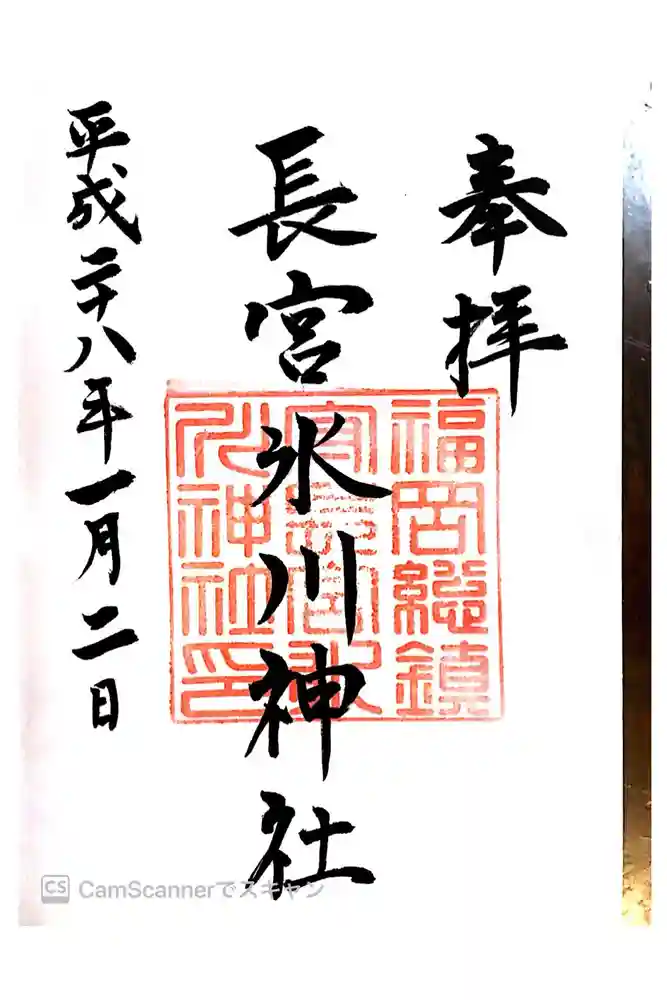 奉拝
長宮氷川神社
平成二十八年一月二日
福岡総鎮
川神社印
CamScannerでスキャン